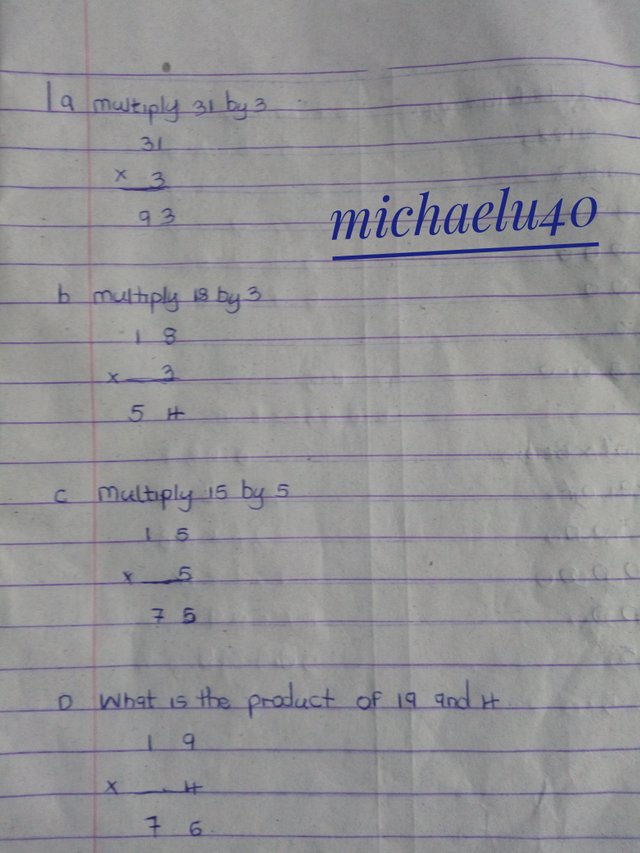 1a multiply 31 by 3
31
x 3
93
michaelu40
b multiply 18 by 3
1 8
x 3
5 4
c multiply 15 by 5
1 5
x 5
7 5
D What is the product of 19 and 4
1 9
x 4
7 6